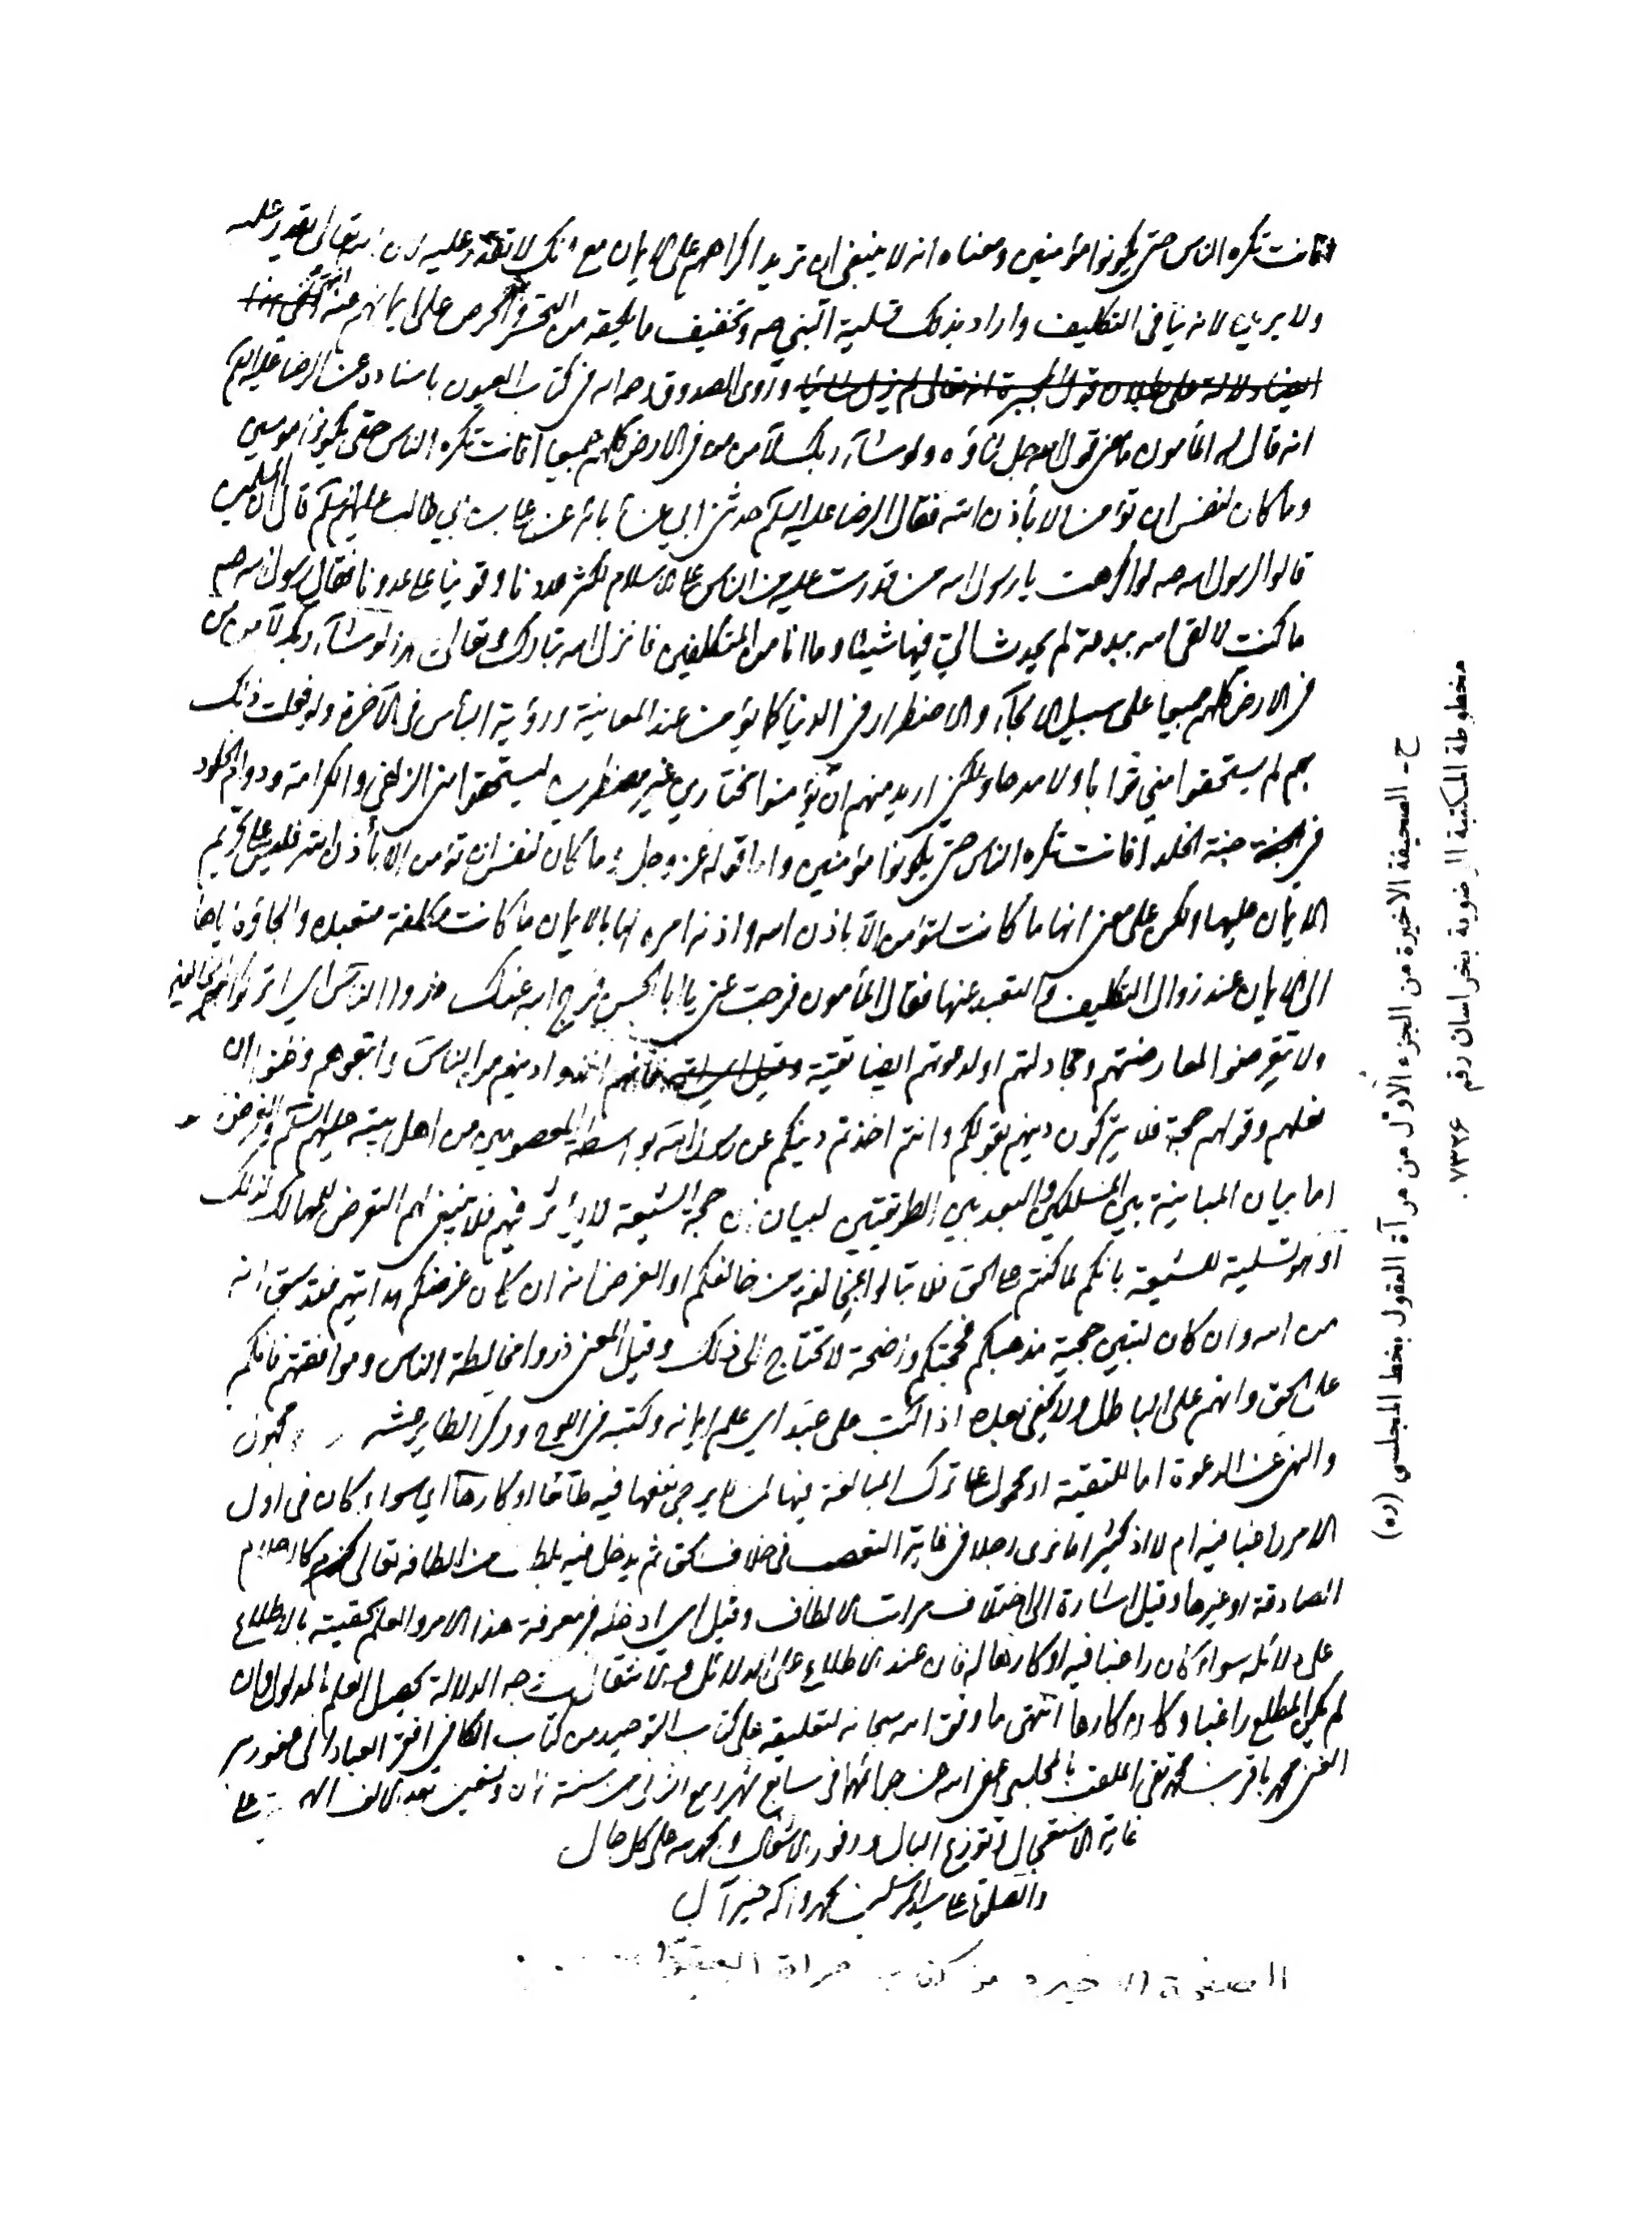 أفانت تكره الناس حتى يكونوا مؤمنين ومعناه انه لا ينبغي ان تريد اكراههم على الايمان مع انك لا تقدر عليه لان الله تعالى يقدر عليه
ولا يريده لانه ينافي التكليف واراد بذلك تسلية النبي صه وتخفيف ما يلحقه من التحسر والحرص على ايمانهم عنه انتهى
ايضا دلالة على بطلان قول المجبرة انه تعالى لم يزل وروى الصدوق رحمه الله في كتاب العيون باسناده عن الرضا عليه السلم
انه قال له المأمون ما معنى قول الله جل ثناؤه ولو شآء ربك لآمن من في الارض كلهم جميعا أفانت تكره الناس حتى يكونوا مؤمنين
وما كان لنفس ان تؤمن الا بأذن الله فقال الرضا عليه السلم حدثني ابي عن آبائه عن علي بن ابي طالب عليهم السلم قال ان المسلمين
قالوا لرسول الله صه لو اكرهت يا رسول الله من قدرت عليه من الناس على الاسلام لكثر عددنا وقوينا على عدونا فقال رسول الله صه
ما كنت لالقى الله ببدعة لم يحدث الي فيها شيئا وما انا من المتكلفين فانزل الله تبارك وتعالى يا محمد ولو شآء ربك لآمن من
في الارض كلهم جميعا على سبيل الالجآء والاضطرار في الدنيا كما يؤمن عند المعاينة ورؤية البأس في الآخرة ولو فعلت ذلك
بهم لم يستحقوا مني ثوابا ولا مدحا ولكني اريد منهم ان يؤمنوا مختارين غير مضطرين ليستحقوا مني الزلفى والكرامة ودوام الخلود
في الجنة جنة الخلد أفانت تكره الناس حتى يكونوا مؤمنين واما قوله عز وجل وما كان لنفس ان تؤمن الا بأذن الله فليس على تحريم
الايمان عليها ولكن على معنى انها ما كانت لتؤمن الا باذن الله واذنه امره لها بالايمان ما كانت مكلفة متعبدة والجاؤه اياها
الى الايمان عند زوال التكليف والتعبد عنها فقال المأمون فرجت عني يا ابا الحسن فرج الله عنك ذروا الناس اي اتركوا المخالفين
ولا تتعرضوا لمعارضتهم ومجادلتهم او لدعوتهم ايضا تقية فانهم اخذوا دينهم من الناس واتبعوهم وظنوا ان
فعلهم وقولهم حجة فلا يتركون دينهم بقولكم وانتم اخذتم دينكم عن رسول الله بواسطة المعصومين من اهل بيته عليهم السلم والغرض
اما بيان المباينة بين المسلكين والبعد بين الطريقتين لبيان ان حجة الشيعة لا يؤثر فيهم فلا ينبغي لهم التعرض للمهالك لذلك
او هو تسلية للشيعة بانكم لما كنتم على الحق فلا تبالوا بمخالفة من خالفكم او الغرض انه ان كان غرضكم هدايتهم فقد سبق انه
من الله وان كان لتبيين حجية مذهبكم فحجتكم واضحة لا تحتاج الى ذلك وقيل المعنى ذروا مخالطة الناس وموافقتهم فانكم
على الحق وانهم على الباطل ولا يخفى بعده اذا كتب على عبد اي علم ايمانه وكتبه في اللوح ووكر الطاير عشه مجهول
والنهي عن الدعوة اما للتقية او محمول على ترك المبالغة فيها لمن لا يرجى نفعها فيه طائعا او كارها اي سواء كان في اول
الامر راغبا فيه ام لا اذ كثيرا ما نرى رجلا في غاية التعصب في خلاف الحق ثم يدخل فيه بلطف من الطافه تعالى كالاحلام
الصادقة او غيرها وقيل اشارة الى اختلاف مراتب الالطاف وقيل اي ادخله في معرفة هذا الامر والعلم بحقيته بالاطلاع
على دلائله سواء كان راغبا فيه او كارها له فان عند الاطلاع على الدلائل والانتقال الى وجه الدلالة يحصل العلم بالمدلول وان
لم يكن المطلع راغبا وكان كارها انتهى ما وفق الله سبحانه لتعليقه على كتاب التوحيد من كتاب الكافي افقر العباد الى عفو ربه
الغني محمد باقر بن محمد تقي الملقب بالمجلسي عفى الله عن جرائمهما في سابع شهر ربيع الثاني من سنة ثمان وتسعين بعد الالف الهجرية على
غاية الاستعجال وتوزع البال ووفور الاشغال والحمد لله على كل حال
والصلوة على سيد المرسلين محمد وآله خير آل
الصفحة الاخيرة من كتاب مرآة العقول
ح - الصحيفة الاخيرة من الجزء الأول من مرآة العقول بخط المجلسي (ره)
مخطوطة المكتبة الرضوية بخراسان رقم ٧٣٢۶ .